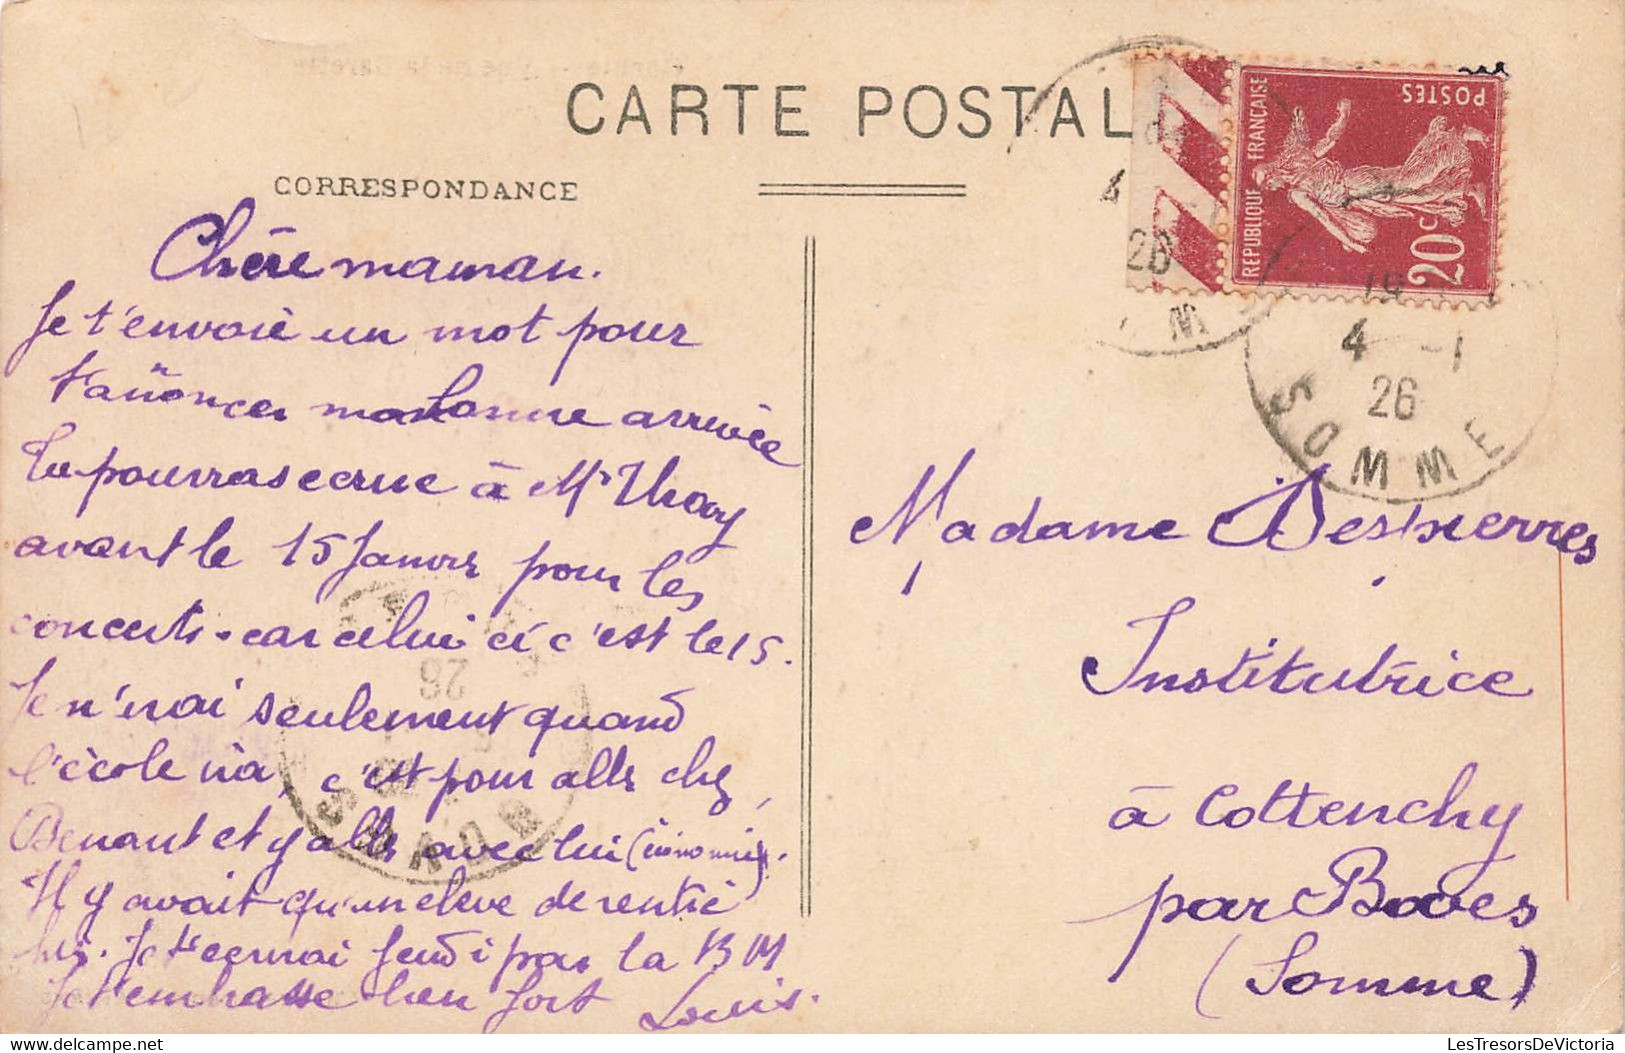 CARTE POSTAL
CORRESPONDANCE
Chère maman.
Je t'envoie un mot pour
t'annoncer ma bonne arrivée
Tu pourras ecrire à Mr Thooy
avant le 15 Janvier pour les
concerts. car celui ci c'est le 15.
Je n'irai seulement quand
l'école ira, c'est pour aller chez
Benant et y aller avec lui
Il y avait qu'un eleve de rentré
hier. Je t'ecrirai Jeudi par la BM
Je t'embrasse bien fort Louis.
REPUBLIQUE FRANÇAISE
POSTES
20c
4
26
M
4 -1
26
SOMME
26
SOMME
Madame Desxierres
Institutrice
à Cottenchy
par Boves
(Somme)
LesTresorsDeVictoria